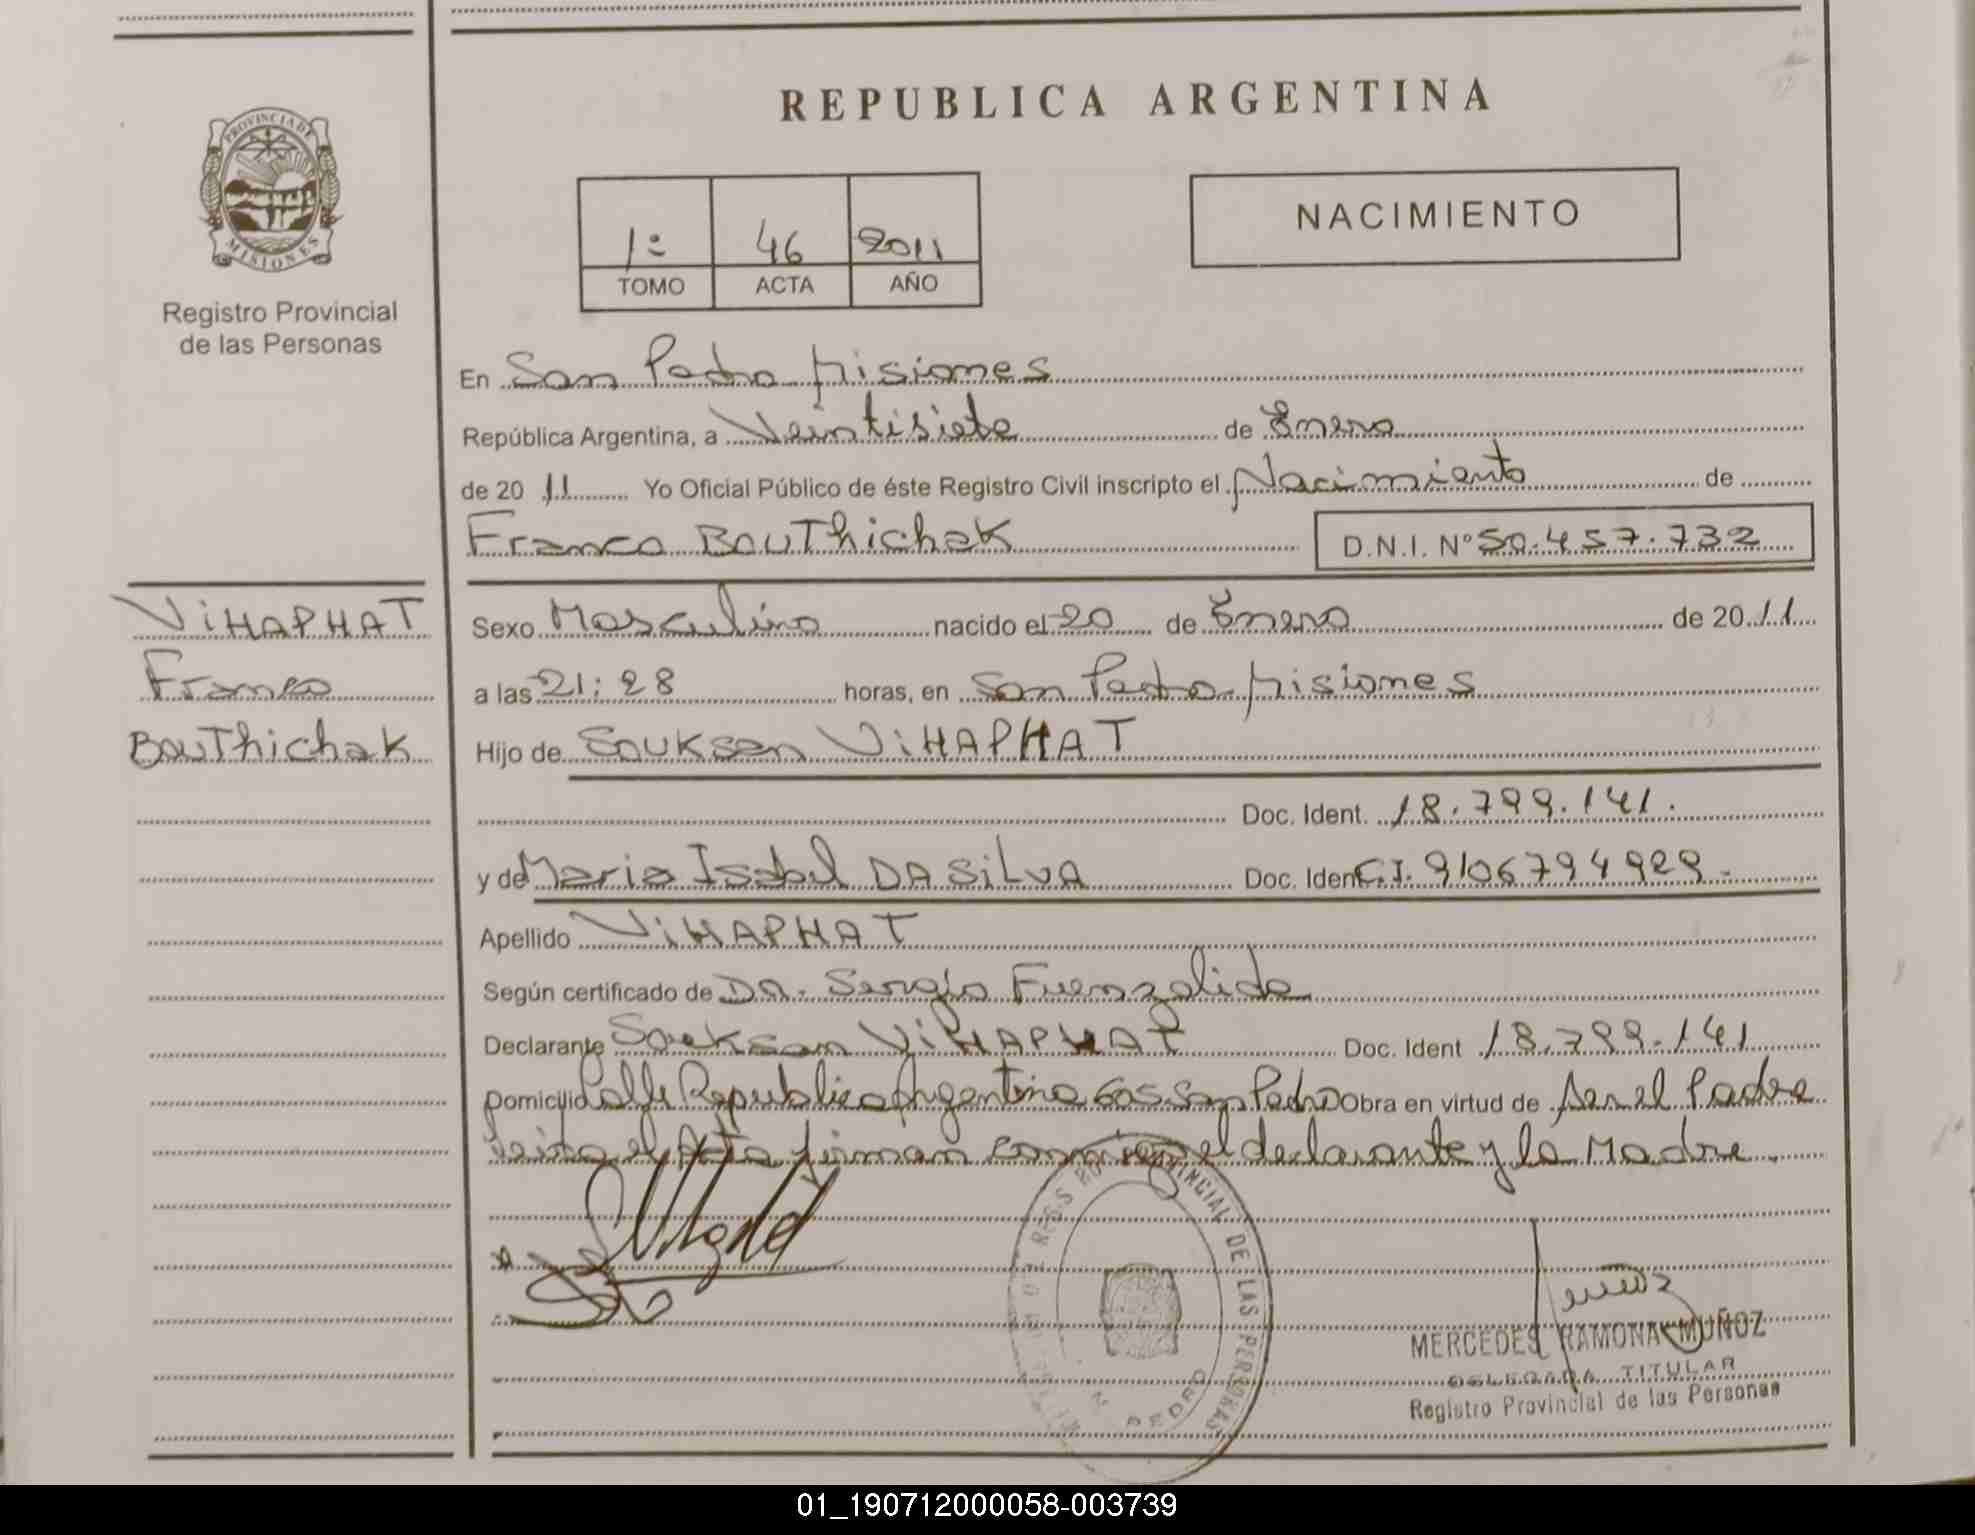 REPUBLICA ARGENTINA
PROVINCIA DE
MISIONES
Registro Provincial
de las Personas
1º 46 2011
TOMO ACTA AÑO
NACIMIENTO
En San Pedro Misiones
República Argentina, a Veintisiete de Enero
de 20 11 Yo Oficial Público de éste Registro Civil inscripto el Nacimiento de
Franco BouThichak D.N.I. Nº 50.457.732
ViHAPHAT
Franco
BouThichak
Sexo Masculino nacido el 20 de Enero de 20 11
a las 21:28 horas, en San Pedro Misiones
Hijo de Souksan ViHAPHAT
Doc. Ident. 18.799.141.
y de Maria Isabel DA SiLVA Doc. Ident C.I. 9106794929-
Apellido ViHAPHAT
Según certificado de Dr. Sergio Fuenzalida
Declarante Souksan ViHAPHAT Doc. Ident 18.799.141
Domicilio Calle Republica Argentina 605 San Pedro Obra en virtud de ser el Padre
leida el Acta firman conmigo el declarante y la Madre.
PROVINCIAL DE LAS PERSONAS
PEDRO
MERCEDES RAMONA MUÑOZ
DELEGADA TITULAR
Registro Provincial de las Personas
01_190712000058-003739